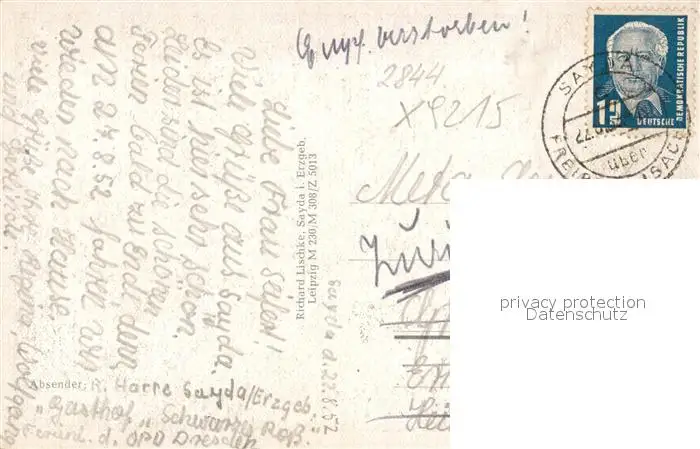 Empf. verstorben!
2844
X9215
DEUTSCHE DEMOKRATISCHE REPUBLIK
12
SAYDA
über
FREIBERG (SACHS)
Liebe Frau
Viele Grüße aus Sayda.
Es ist hier sehr schön.
Leider sind die schönen
Ferien bald zu Ende, denn
am 27.8.52 fahren wir
wieder nach Hause.
Viele Grüße
und
Sayda d. 22.8.52
Richard Lischke, Sayda i. Erzgeb.
Leipzig M 230/M 308/Z 5013
Meta
Zurück
Absender: R. Harre Sayda/Erzgeb.
"Gasthof" Schwarzes Roß.
Ferienh. d. OPD Dresden
privacy protection
Datenschutz